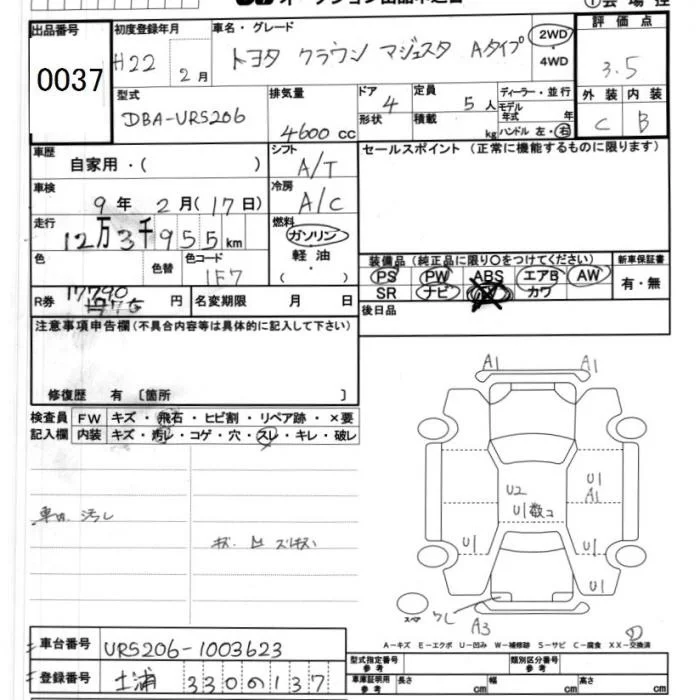 出品番号
0037
初度登録年月
H22 2月
車名・グレード
トヨタ クラウン マジェスタ Aタイプ
2WD
・
4WD
評価点
3.5
型式
DBA-URS206
排気量
4600 cc
ドア 4
形状
定員 5人
積載 kg
ディーラー・並行
モデル年式 年
ハンドル 左・右
外装 内装
C B
車歴
自家用・( )
シフト
A/T
セールスポイント（正常に機能するものに限ります）
車検
9年 2月(17日)
冷房
A/C
走行
12万3千955km
燃料
ガソリン
軽油
( )
色
色替
色コード
1F7
装備品（純正品に限り〇をつけてください）
PS PW ABS エアB AW
SR ナビ カワ
新車保証書
有・無
R券
17790
円
名変期限 月 日
後日品
注意事項申告欄（不具合内容等は具体的に記入して下さい）
修復歴 有 〔箇所 〕
検査員 FW キズ・飛石・ヒビ割・リペア跡・×要
記入欄 内装 キズ・汚レ・コゲ・穴・スレ・キレ・破レ
車内 汚し
A1 A1
U2
U1数コ
U1
A1
U1
U1
スペア
A3
A－キズ E－エクボ U－凹み W－補修跡 S－サビ C－腐食 XX－交換済
車台番号 URS206-1003623
登録番号 土浦 330の137
型式指定番号
参考
類別区分番号
参考
車庫証明用
参考
長さ cm
幅 cm
高さ cm